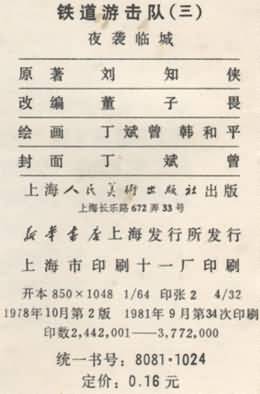 铁道游击队(三)
夜袭临城
原著 刘知侠
改编 董子畏
绘画 丁斌曾 韩和平
封面 丁斌曾
上海人民美術出版社出版
上海长乐路672弄33号
新华書店上海发行所发行
上海市印刷十一厂印刷
开本850×1048 1/64 印张2 4/32
1978年10月第2版 1981年9月第34次印刷
印数2,442,001——3,772,000
统一书号:8081·1024
定价:0.16元